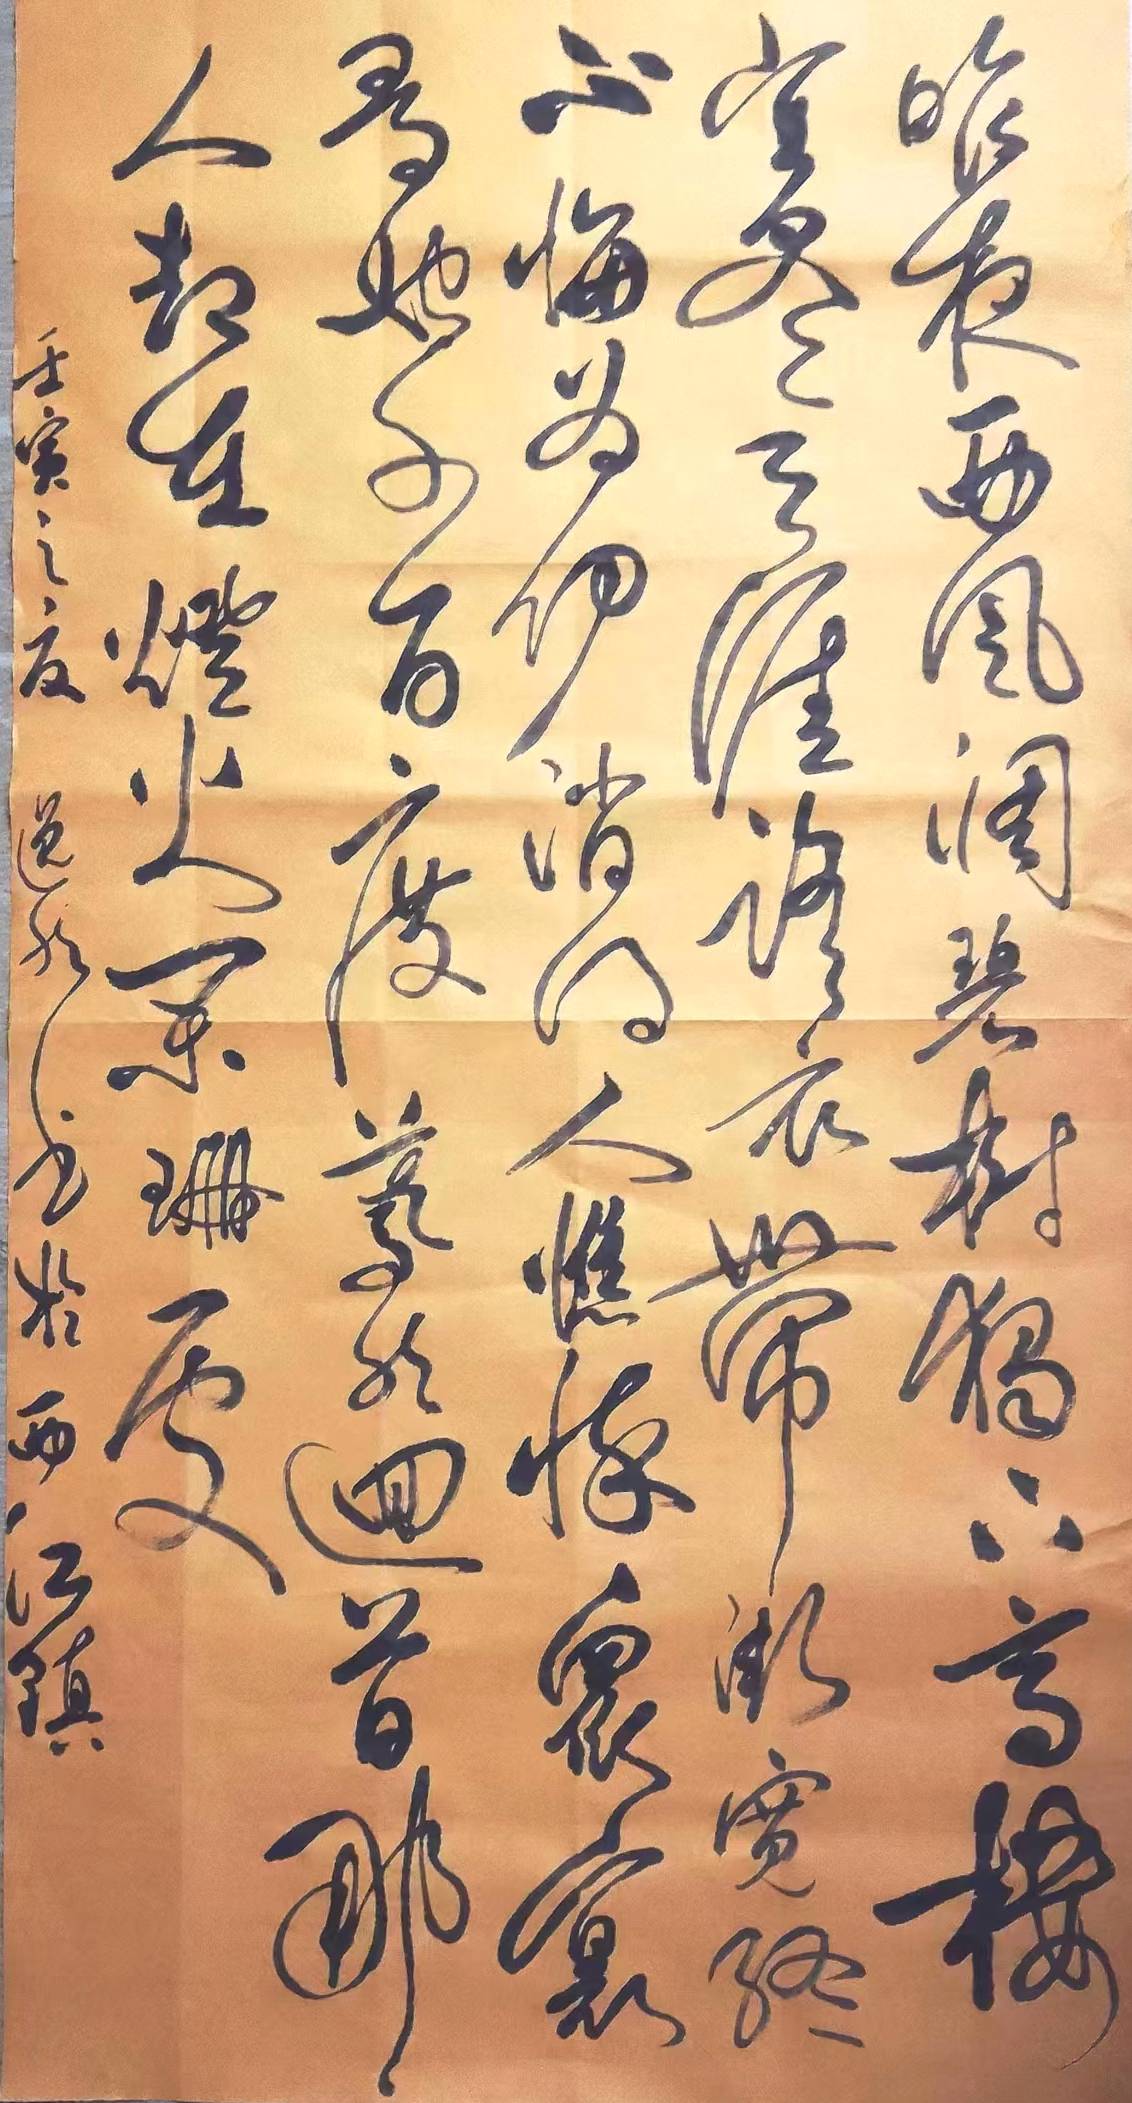 昨夜西風凋碧樹獨下高樓
望盡天涯路衣帶漸寬終
不悔為伊消得人憔悴眾裏
尋她千百度驀然迴首那
人却在燈火闌珊處
壬寅之夏 逸然書於西江鎮